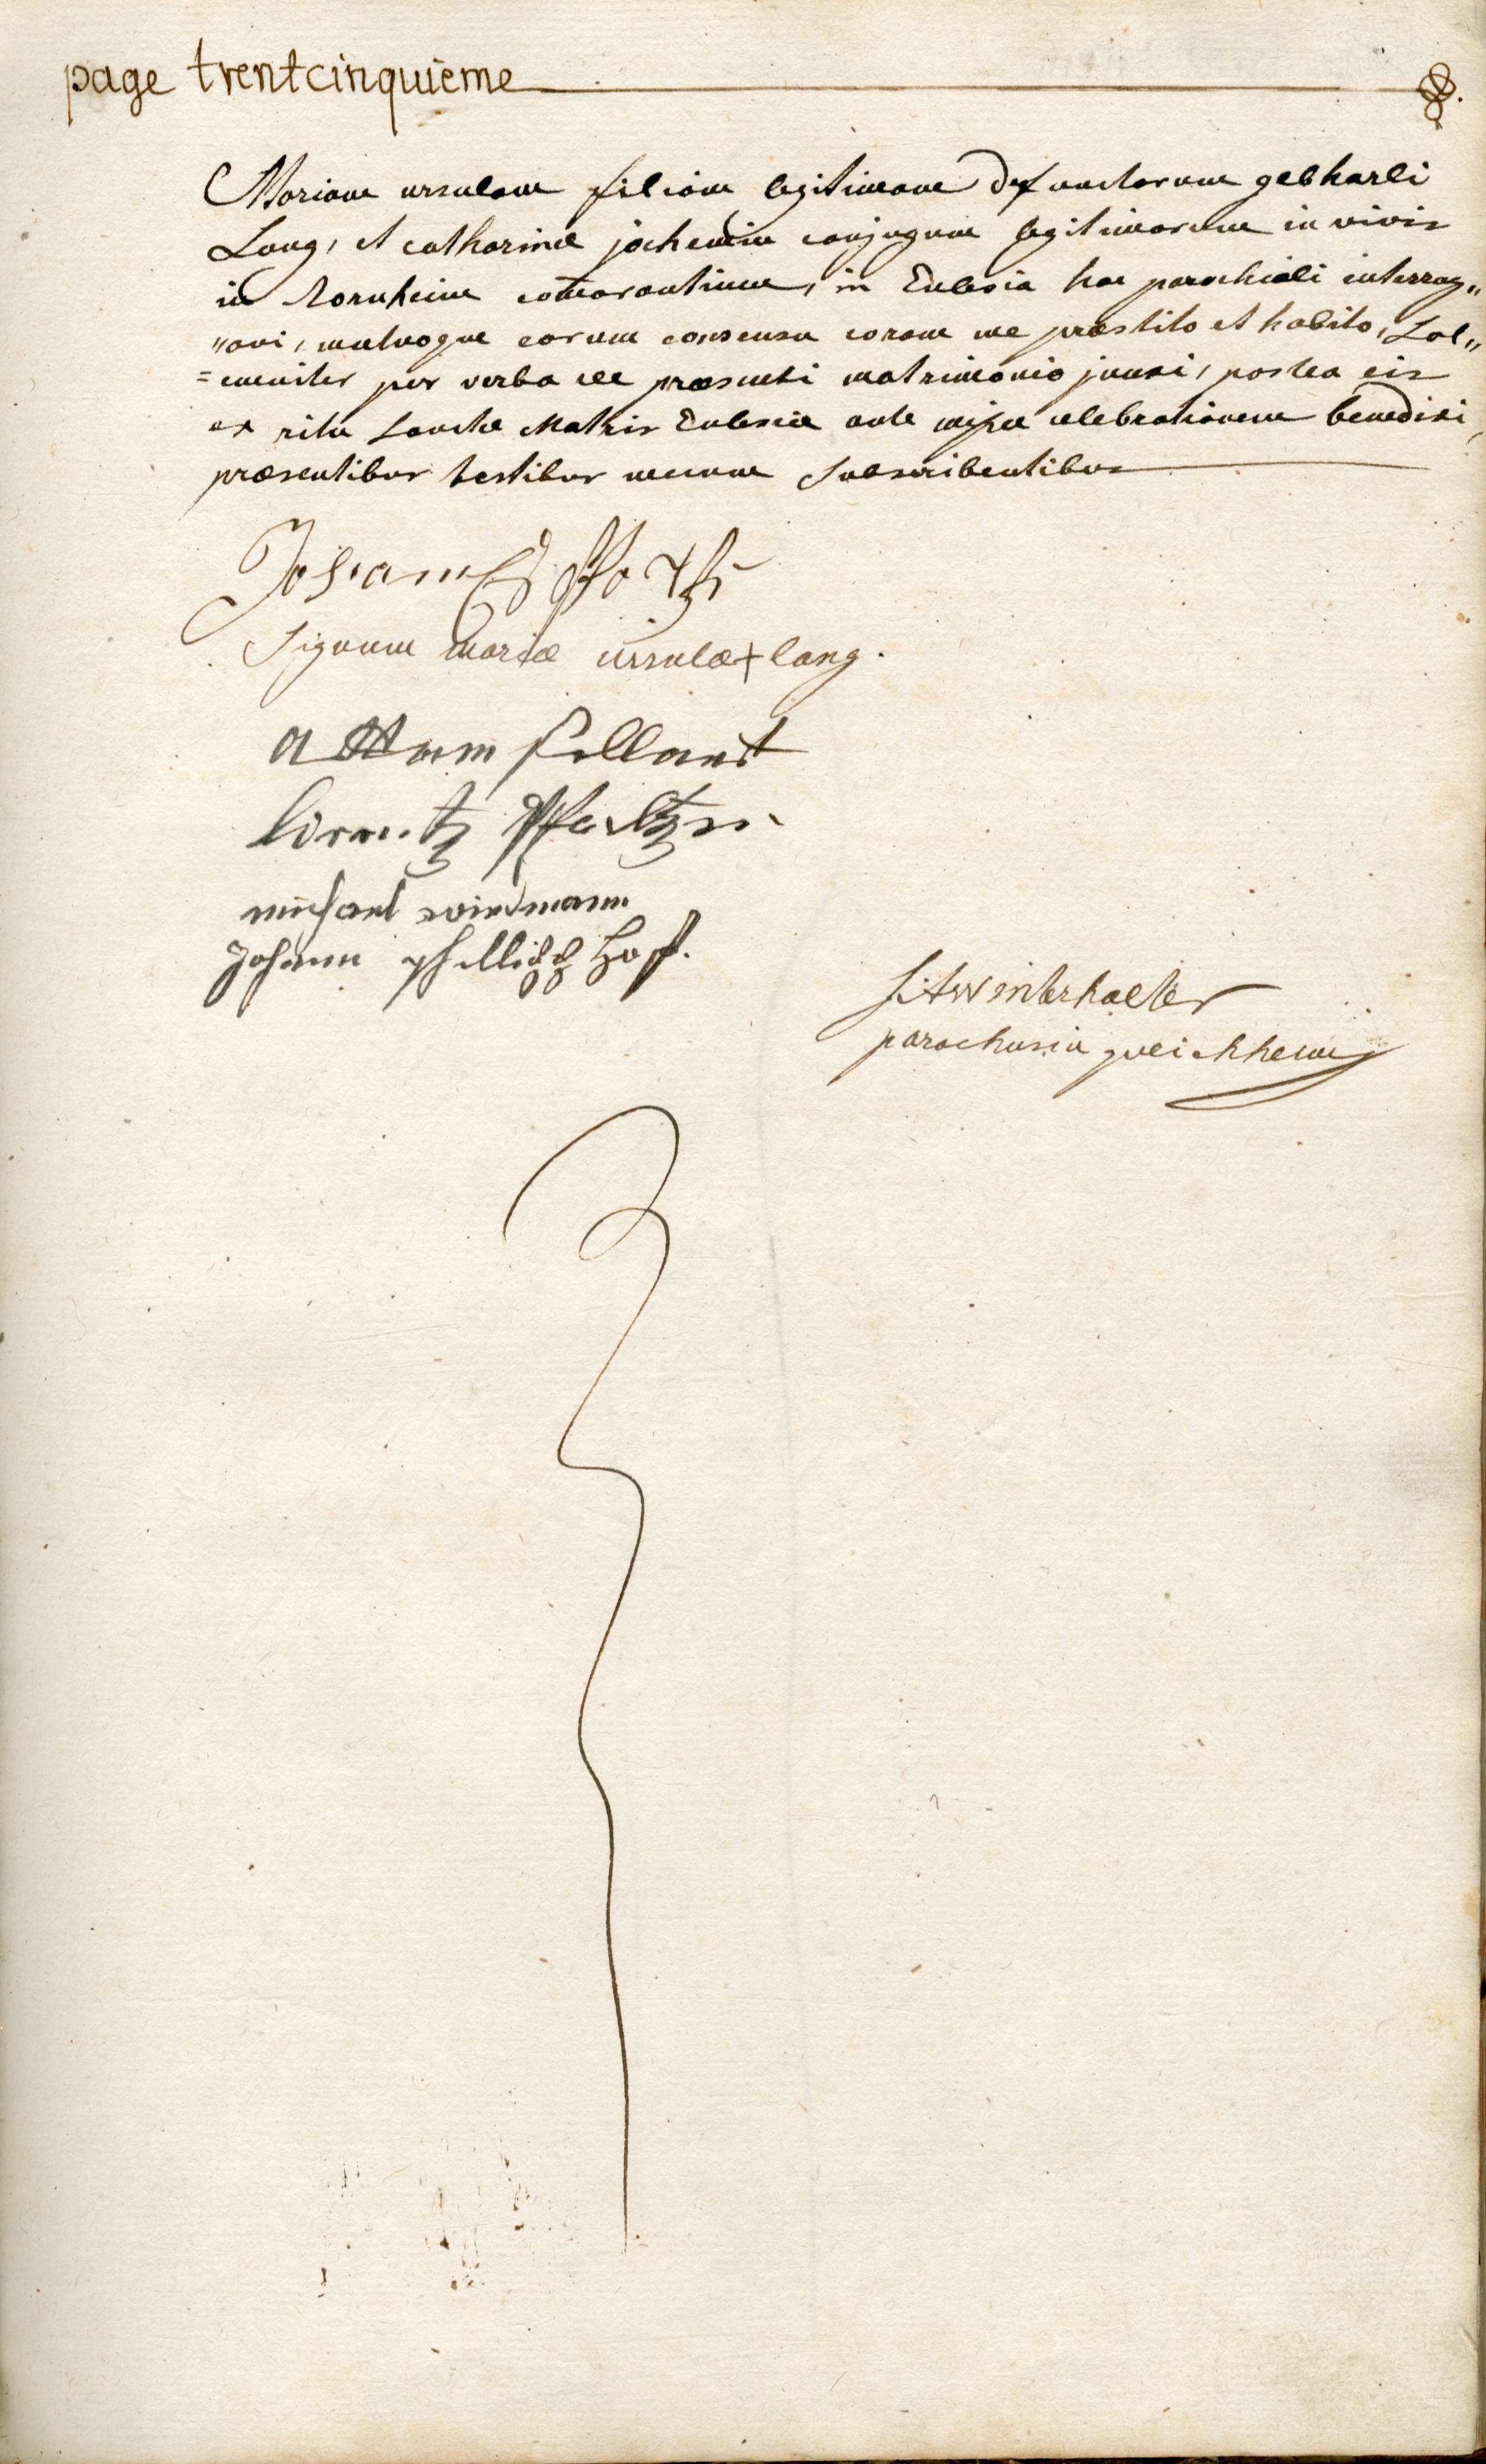 page trentcinquieme
Mariam ursulam filiam legitimam defunctorum gebhardi
Lang, et catharinæ jochemin conjugum legitimorum in vivis
in Rornheim comorantium, in Ecclesia hac parochiali interrog"
"avi, mutuoque eorum consensu coram me præstito et habito, Sol"
=emniter per verba de præsenti matrimonio junxi, postea eis
ex ritu Sanctæ Matris Ecclesiæ ante missæ celebrationem benedixi,
præsentibus testibus mecum Subscribentibus
Johannes
Signum mariæ ursulæ + lang.
attam
lorentz
michael windmann
Johann phillipp Hoff.
Winterhalter
parochus in